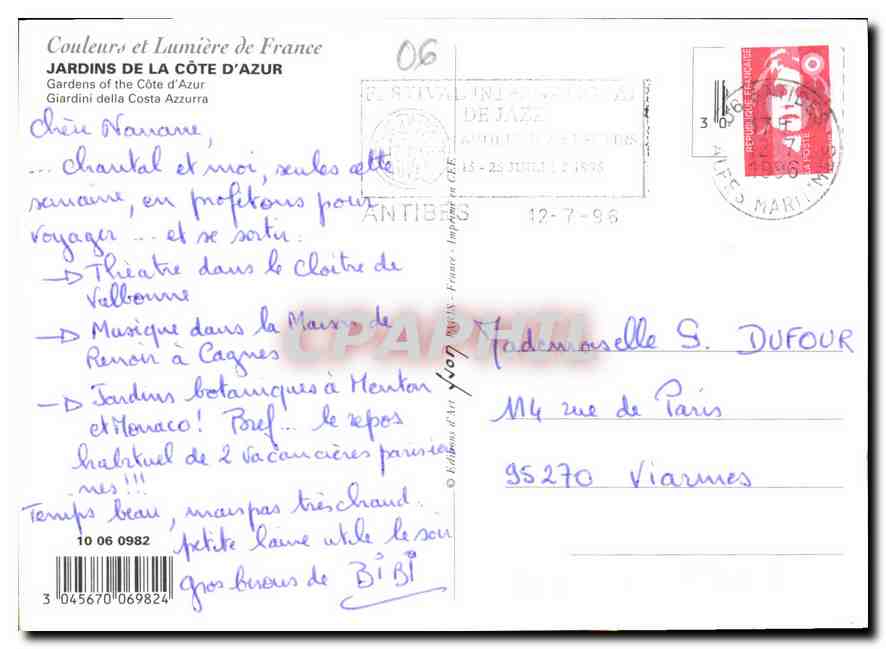 Couleurs et Lumière de France
JARDINS DE LA CÔTE D'AZUR
Gardens of the Côte d'Azur
Giardini della Costa Azzurra
06
Chère Nanane,
... chantal et moi, seules cette
semaine, en profitons pour
voyager ... et se sortir :
→ Théatre dans le cloitre de
Valbonne
→ Musique dans la Maison de
Renoir à Cagnes
→ Jardins botaniques à Menton
et Monaco! Bref... le repos
habituel de 2 vacancières parisien
nes!!!
Temps beau, mais pas très chaud.
petite laine utile le soir
gros bisous de BiBi
10 06 0982
3 045670 069824
© Editions d'Art Yvon PARIS - France - Imprimé en CEE
FESTIVAL INTERNATIONAL
DE JAZZ
JUILLET 1996
ANTIBES 12-7-96
30
RÉPUBLIQUE FRANÇAISE
LA POSTE
06 ANTIBES
12-7
1996
ALPES MARITIMES
CPAPHIL
Mademoiselle S. DUFOUR
114 rue de Paris
95270 Viarmes